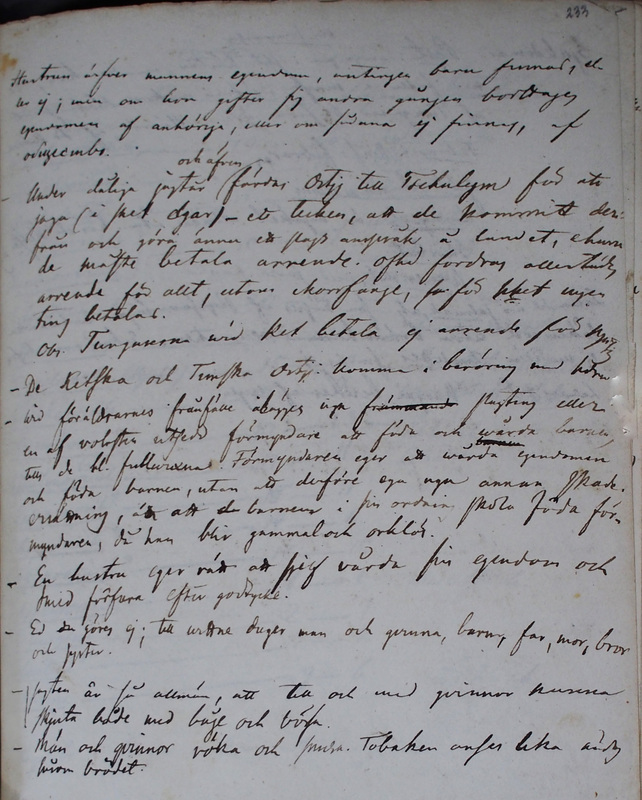 233
Hustrun ärfver mannens egendom, antingen barn finnas, el-
ler ej; men om hon gifter sig andra gången borttages
egendomen af anhöriga, eller om sådana ej finnas, af
och äfven
- Under dåliga jagtår färdas Ostj. till Tschulym för att
jaga (i Ket ägar) – ett tecken, att de kommit der-
ifrån och göra ännu ett slags anspråk å landet, ehuru
de måste betala arrende. Ofta fordras allenast
arrende för allt, utom ekorrfånge, för Ket ingen
ting betalas.
Obs. Tunguserna vid Ket betala ej arrende för
- De Ketska och Timska Ostj. komma i beröring med
- Vid föräldrarnes frånfälle någon främmande slägting eller
en af volosten utsedd förmyndare att föda och vårda barnen
till de bl. fullvuxna. Förmyndaren eger att vårda egendomen
och föda barnen, utan att derföre ega ngn annan skade-
ersättning, än att de barnen i sin ordning skola föda för-
myndaren, då han blir gammal och orklös.
- En hustru eger rätt att sjelf vårda sin egendom och
dermed förfara efter godtycke.
- Ed göres ej; till vittne duger man och qvinna, barn, far, mor, bror
och syster.
- Jagten är så allmän, att till och med qvinnor kunna
skjuta både med båge och bössa.
- Män och qvinnor röka och snusa. Tobaken anses lika
som brödet.